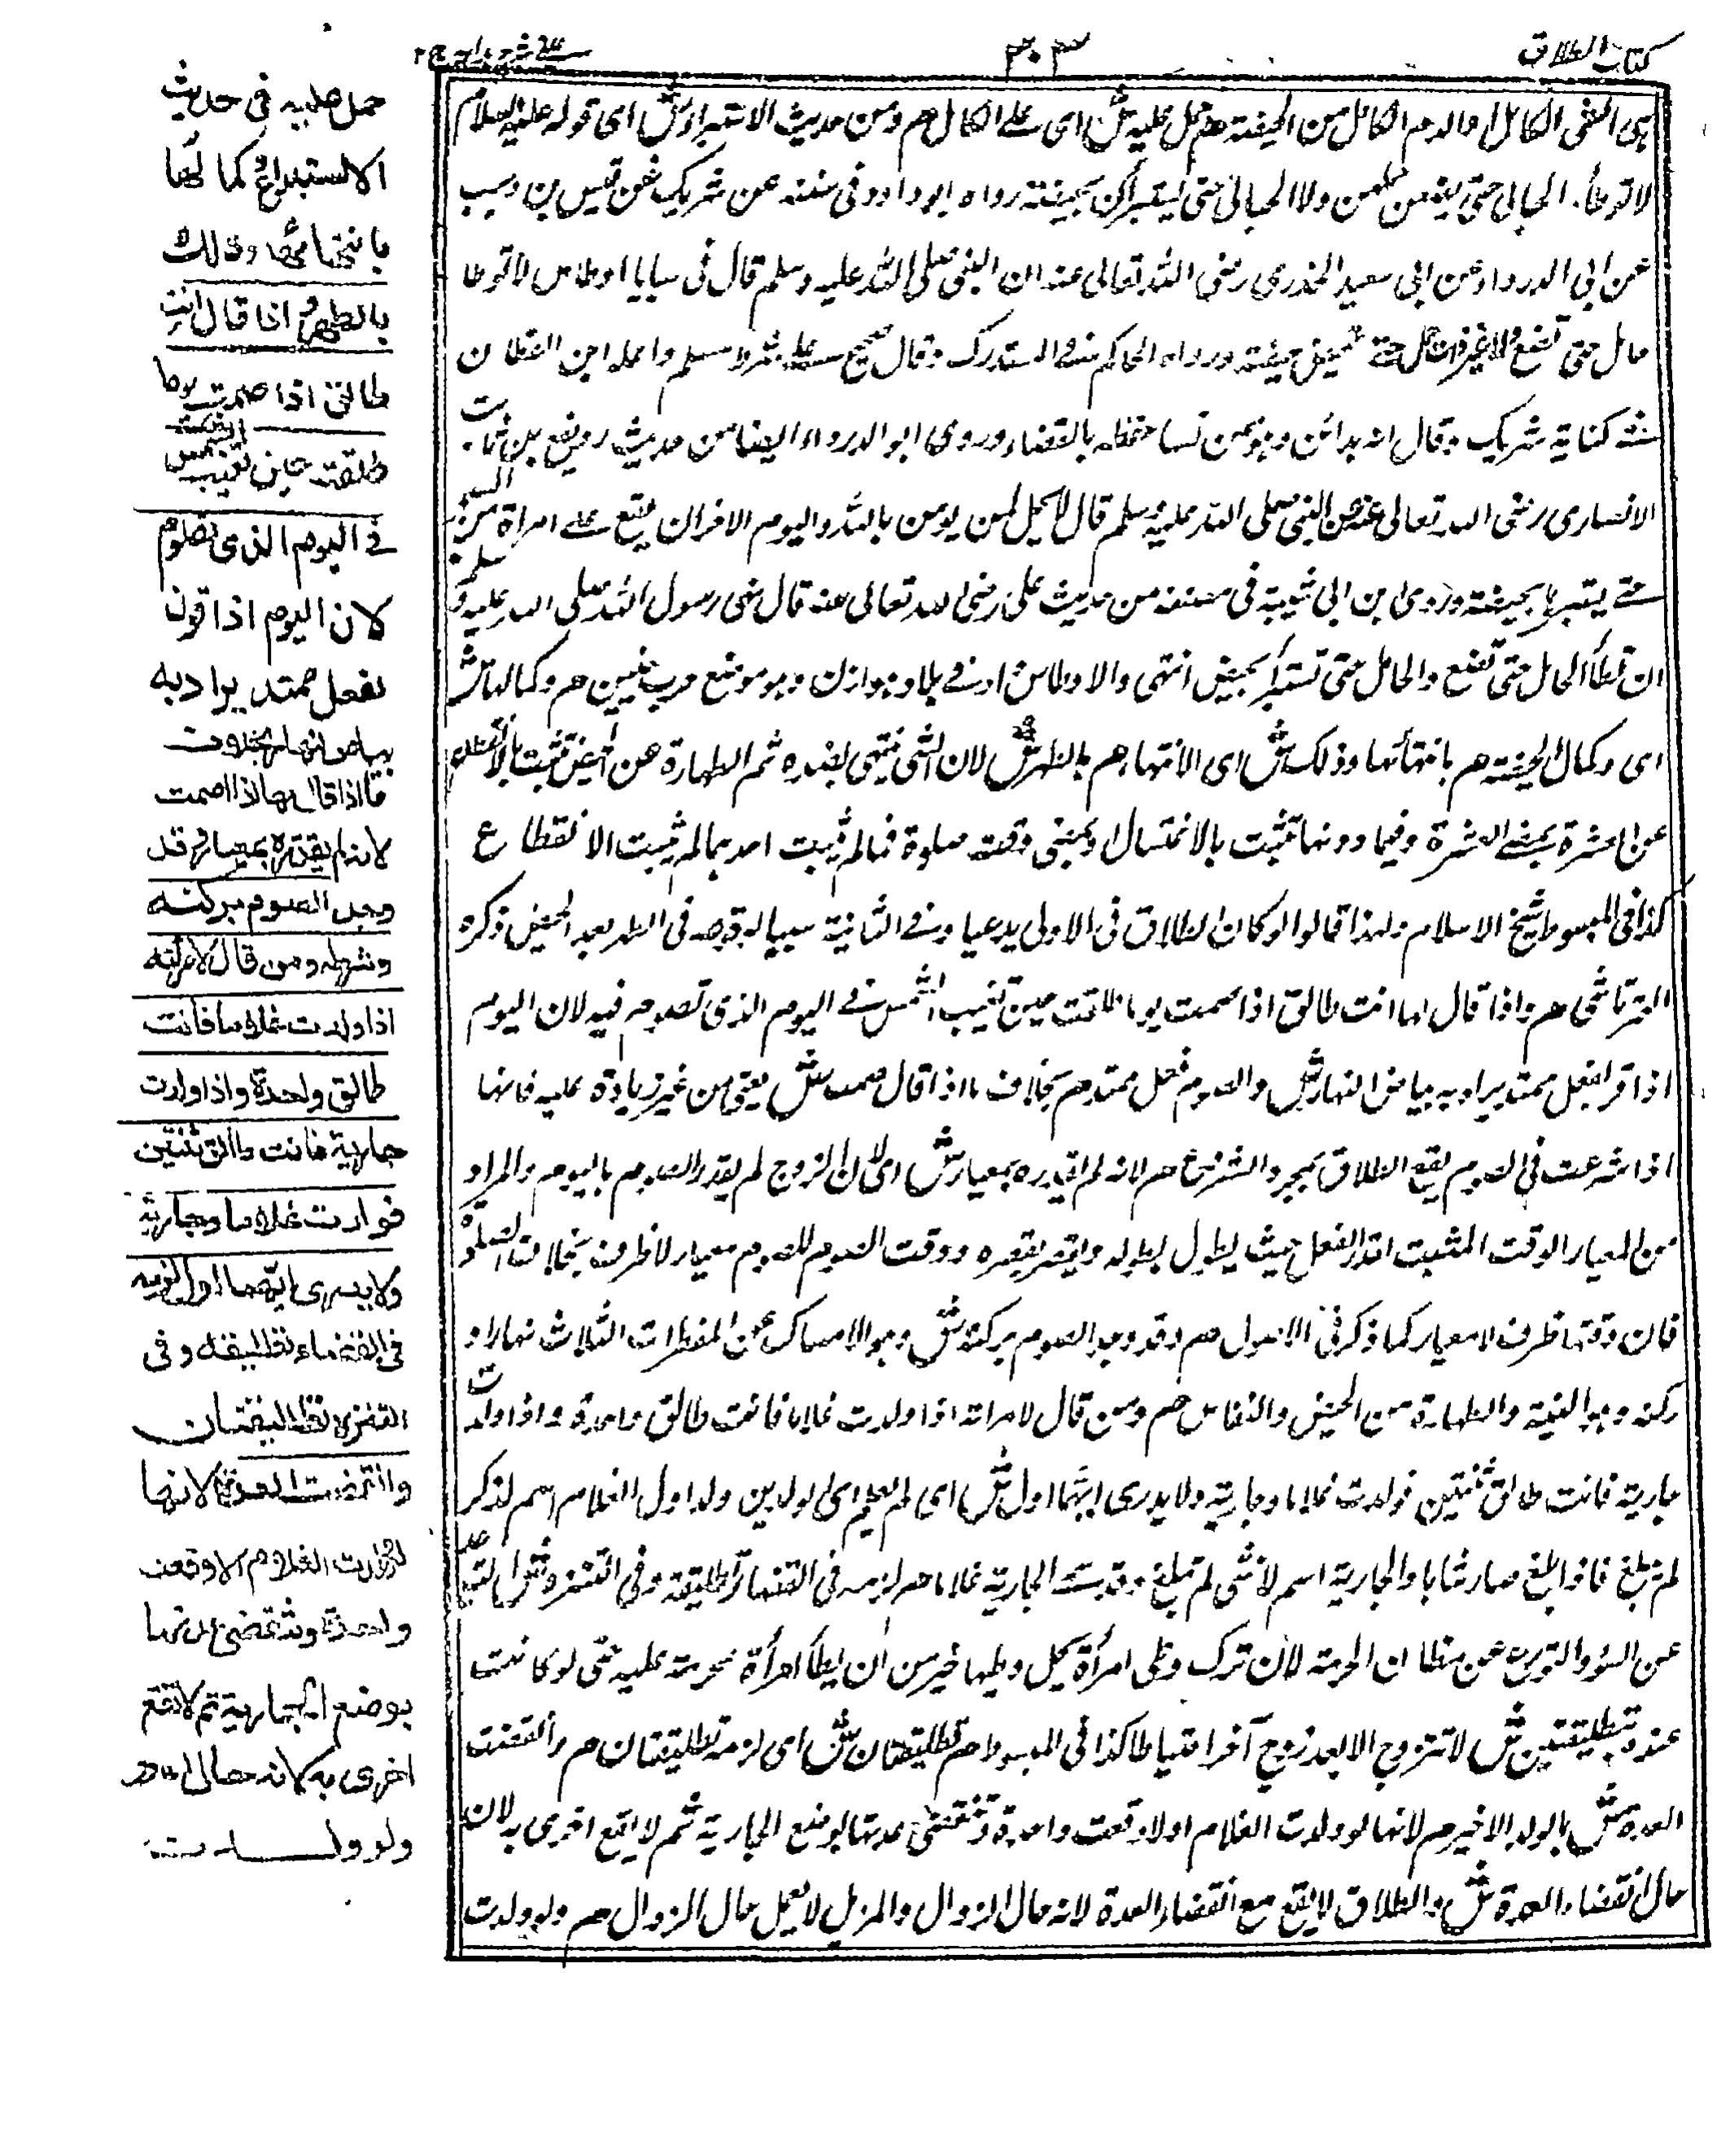 كتاب الطلاق
٣٠٣
عينى شرح هداية ج ٢
هى الحيض الكامل والدم الكامل من الحيضة هم حمل عليه ش اى على الكمال هم ومن حديث الاستبراء ش اى قوله عليه السلام
لا توطأ الحبالى حتى يضعن حملهن ولا الحيالى حتى يستبرأن بحيضة رواه ابو داود فى سننه عن شريك عن قيس بن وهب
عن ابى الدرداء عن ابى سعيد الخدرى رضى الله تعالى عنه ان النبى صلى الله عليه وسلم قال فى سبايا اوطاس لا توطا
حامل حتى تضع ولا غير ذات حمل حتى تحيض حيضة ورواه الحاكم فى المستدرك وقال صحيح على شرط مسلم واعله ابن القطان
شريك وقال انه مدلس وهو ممن ساء حفظه بالقضاء وروى ابو الدرداء ايضا من حديث رويفع بن ثابت
الانصارى رضى الله تعالى عنه عن النبى صلى الله عليه وسلم قال لا يحل لمن يومن بالله واليوم الاخر ان يقع على امرأة من السبى
حتى يستبرئها بحيضة وروى ابن ابى شيبة فى مصنفه من حديث على رضى الله تعالى عنه قال نهى رسول الله صلى الله عليه وسلم
ان توطأ الحامل حتى تضع والحائل حتى تستبرأ بحيض انتهى والاوطاس ارض فى بلاد هوازن وهو موضع حرب حنين هم وكمالها ش
اى وكمال الحيضة هم بانتهائها وذلك ش اى الانتهاء هم بالطهر ش لان الشى ينتهى بضده ثم الطهارة عن الحيض تثبت بالانقطاع
عن العشرة بمضى العشرة وفيما دونها تثبت بالاغتسال او بمضى وقت صلوة فمالم يثبت احدهما لم يثبت الانقطاع
كذا فى المبسوط شيخ الاسلام ولهذا قالوا لو كان الطلاق فى الاولى بدعيا وفى الثانية سنيا لوقوعه فى الطهر بعد الحيض ذكره
التمرتاشى هم واذا قال لها انت طالق اذا صمت يوما طلقت حين تغيب الشمس فى اليوم الذى تصوم فيه لان اليوم
اذا قرن بفعل ممتد يراد به بياض النهار ش والصوم فعل ممتد هم بخلاف ما اذا قال صمت ش يعنى من غير زيادة عليه فانها
اذا شرعت فى الصوم يقع الطلاق بمجرد الشروع هم لانه لم يقدره بمعيار ش اى لان الزوج لم يقدر الصوم باليوم والمراد
من المعيار الوقت المثبت قدر الفعل حيث يطول بطوله ويقصر بقصره ووقت الصوم للصوم معيار لا ظرف بخلاف الصلوة
فان وقتها ظرف لا معيار كما ذكر فى الاصول هم وقد وجد الصوم بركنه ش وهو الامساك عن المفطرات الثلاث نهارا و
ركنه وهو النية والطهارة من الحيض والنفاس هم ومن قال لامراته اذا ولدت غلاما فانت طالق واحدة واذا ولدت
جارية فانت طالق ثنتين فولدت غلاما وجارية ولا يدرى ايهما اول ش اى لم يعلم اى الولدين ولد اول الغلام اسم لذكر
لم يبلغ فاذا بلغ صار شابا والجارية اسم لانثى لم تبلغ هم لزمه فى القضاء تطليقة وفى التنزه ش اى التباعد
عن السوء والتورع عن مظان الحرمة لان ترك وطى امرأة يحل وطيها خير من ان يطأ امرأة محرمة عليه حتى لو كانت
عنده بتطليقتين ش لا تتزوج الا بعد زوج آخر احتياطا كذا فى المبسوط هم تطليقتان ش اى لزمه تطليقتان هم وانقضت
العدة ش بالولد الاخير هم لانها لو ولدت الغلام اولا وقعت واحدة وتنقضى عدتها بوضع الجارية ثم لا يقع اخرى به لان
حال انقضاء العدة ش والطلاق لا يقع مع انقضاء العدة لانه حال الزوال والمزيل لا يعمل حال الزوال هم ولو ولدت
حمل عليه فى حديث
الاستبراء وكمالها
بانتهائها وذلك
بالطهر واذا قال انت
طالق اذا صمت يوما
طلقت حين تغيب الشمس
فى اليوم الذى تصوم
لان اليوم اذا قرن
بفعل ممتد يراد به
بياض النهار بخلاف
ما اذا قال لها اذا صمت
لانه لم يقدره بمعيار وقد
وجد الصوم بركنه
وشرطه ومن قال لامرأته
اذا ولدت غلاما فانت
طالق واحدة واذا ولدت
جارية فانت طالق ثنتين
فولدت غلاما وجارية
ولا يدرى ايهما اول لزمه
فى القضاء تطليقة وفى
التنزه تطليقتان
وانقضت العدة لانها
لو ولدت الغلام اولا وقعت
واحدة وتنقضى عدتها
بوضع الجارية ثم لا تقع
اخرى به لانه حال
ولو ولدت